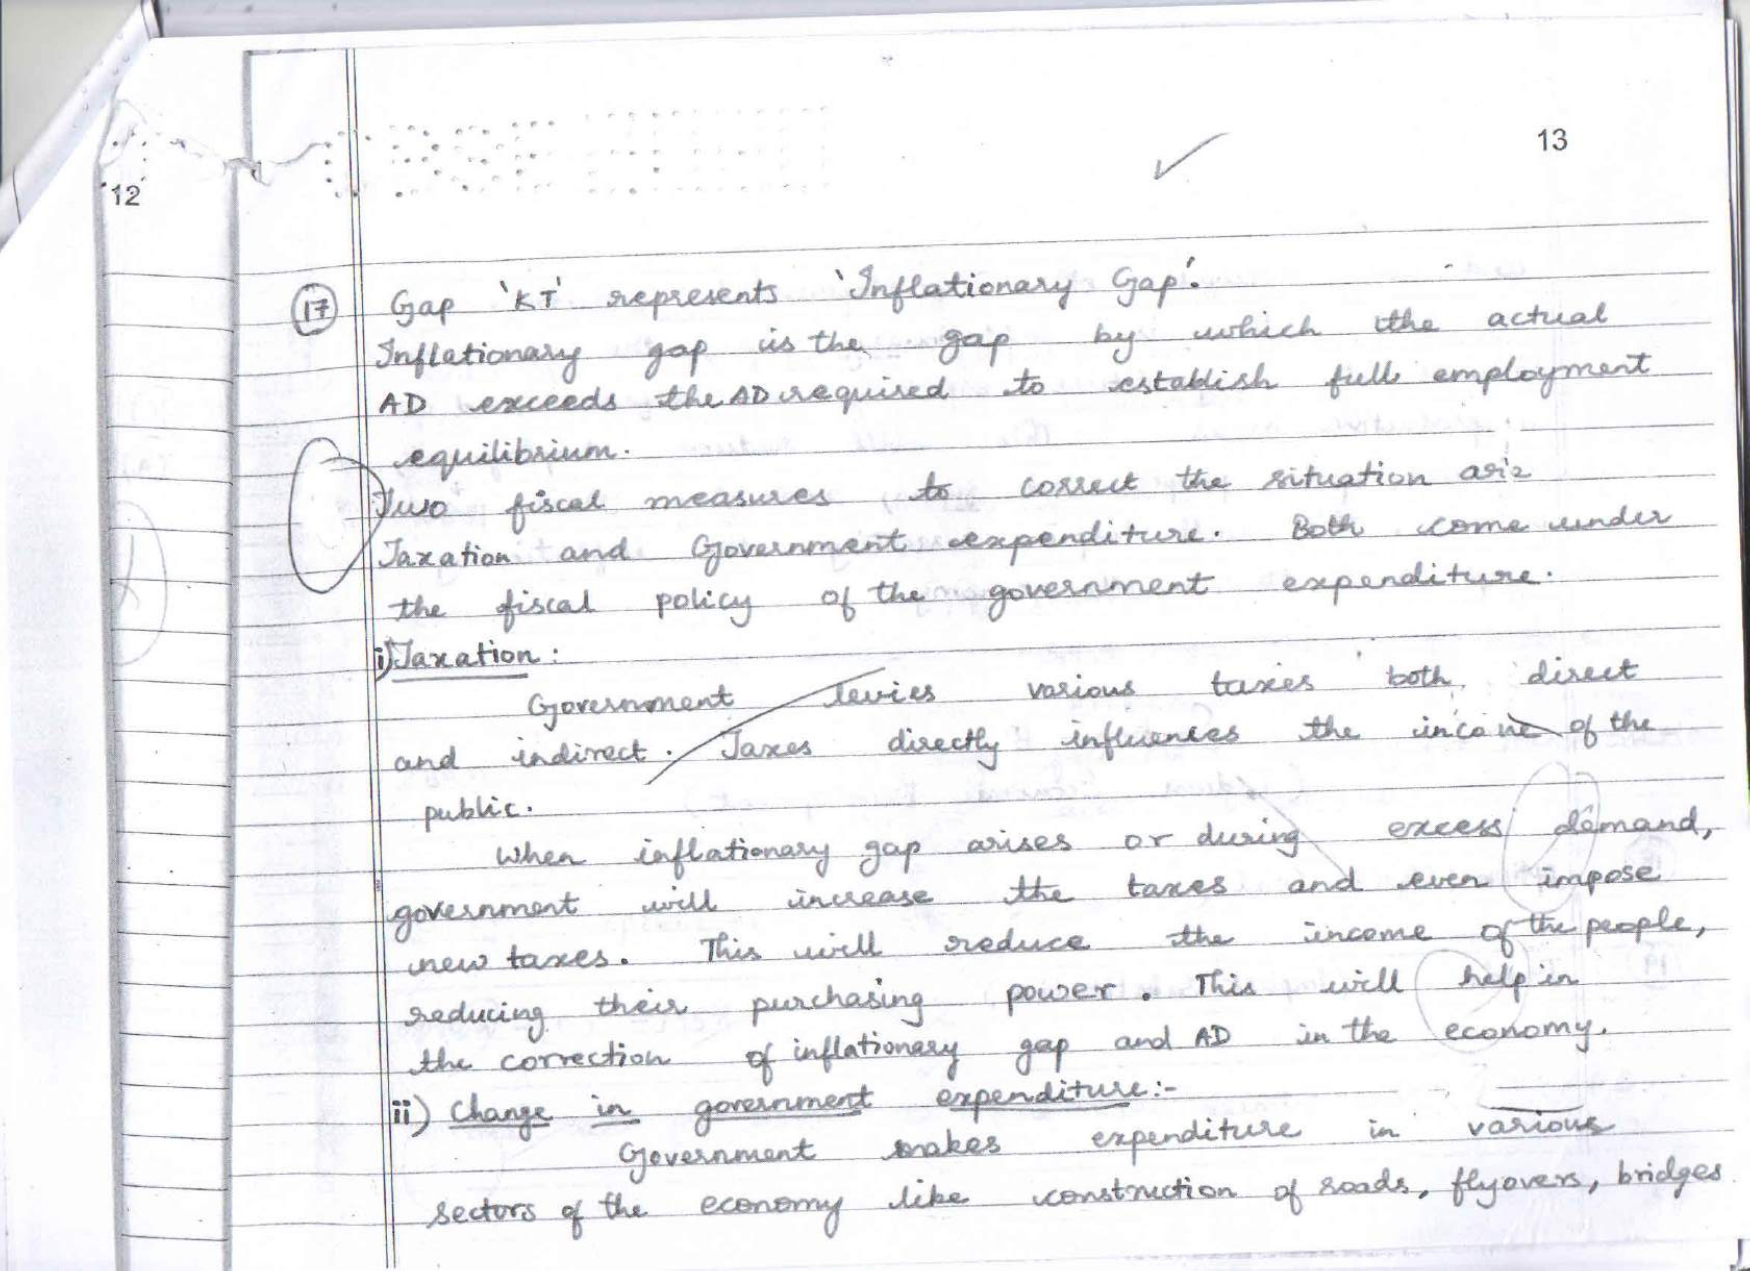 13
12
17 Gap 'KT' represents 'Inflationary Gap'.
Inflationary gap is the gap by which the actual
AD exceeds the AD required to establish full employment
equilibrium.
Two fiscal measures to correct the situation are
Taxation and Government expenditure. Both come under
the fiscal policy of the government expenditure.
i) Taxation:
Government levies various taxes both direct
and indirect. Taxes directly influences the income of the
public.
When inflationary gap arises or during excess demand,
government will increase the taxes and even impose
new taxes. This will reduce the income of the people,
reducing their purchasing power. This will help in
the correction of inflationary gap and AD in the economy.
ii) Change in government expenditure:-
Government makes expenditure in various
sectors of the economy like construction of roads, flyovers, bridges